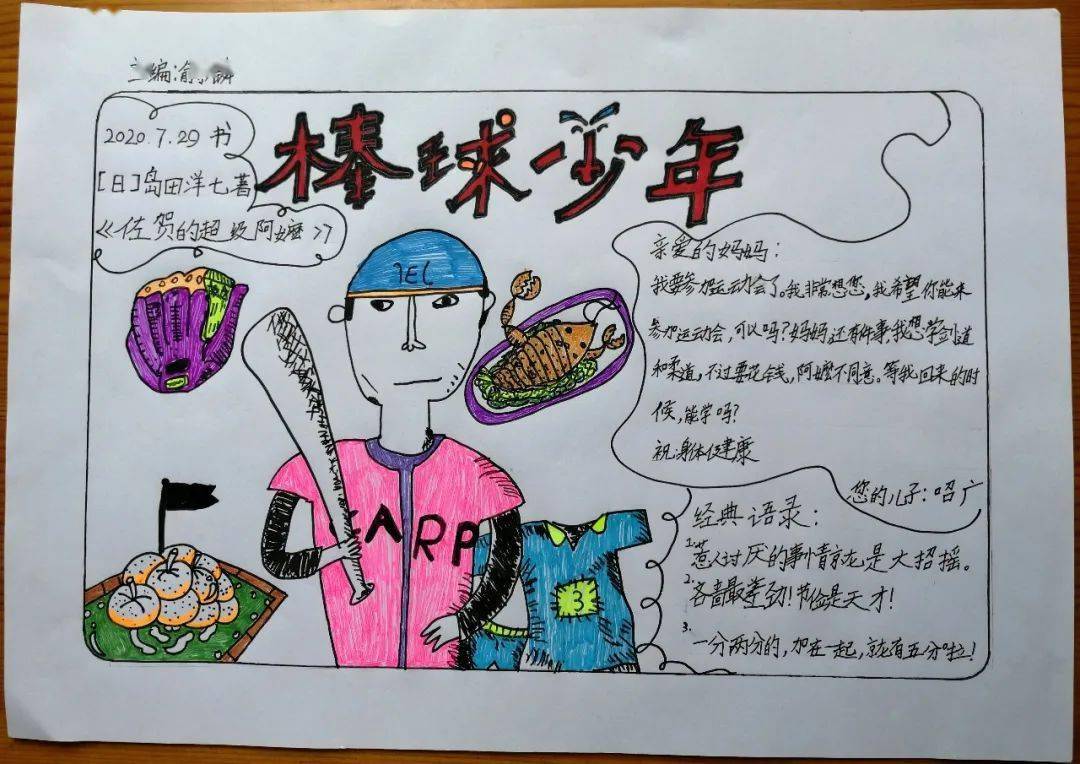 主编渝
2020.7.29 书
[日]岛田洋七著
《佐贺的超级阿嬷》7
棒球少年
亲爱的妈妈：
我要参加运动会了。我非常想您，我希望你能来
参加运动会，可以吗？妈妈还有件事，我想学剑道
和柔道，不过要花钱，阿嬷不同意。等我回来的时
候，能学吗？
祝身体健康
您的儿子：昭广
经典语录：
1. 惹人讨厌的事情就是大招摇。
2. 吝啬最差劲！节俭是天才！
3. 一分两分的，加在一起，就有五分啦！
ARP
3